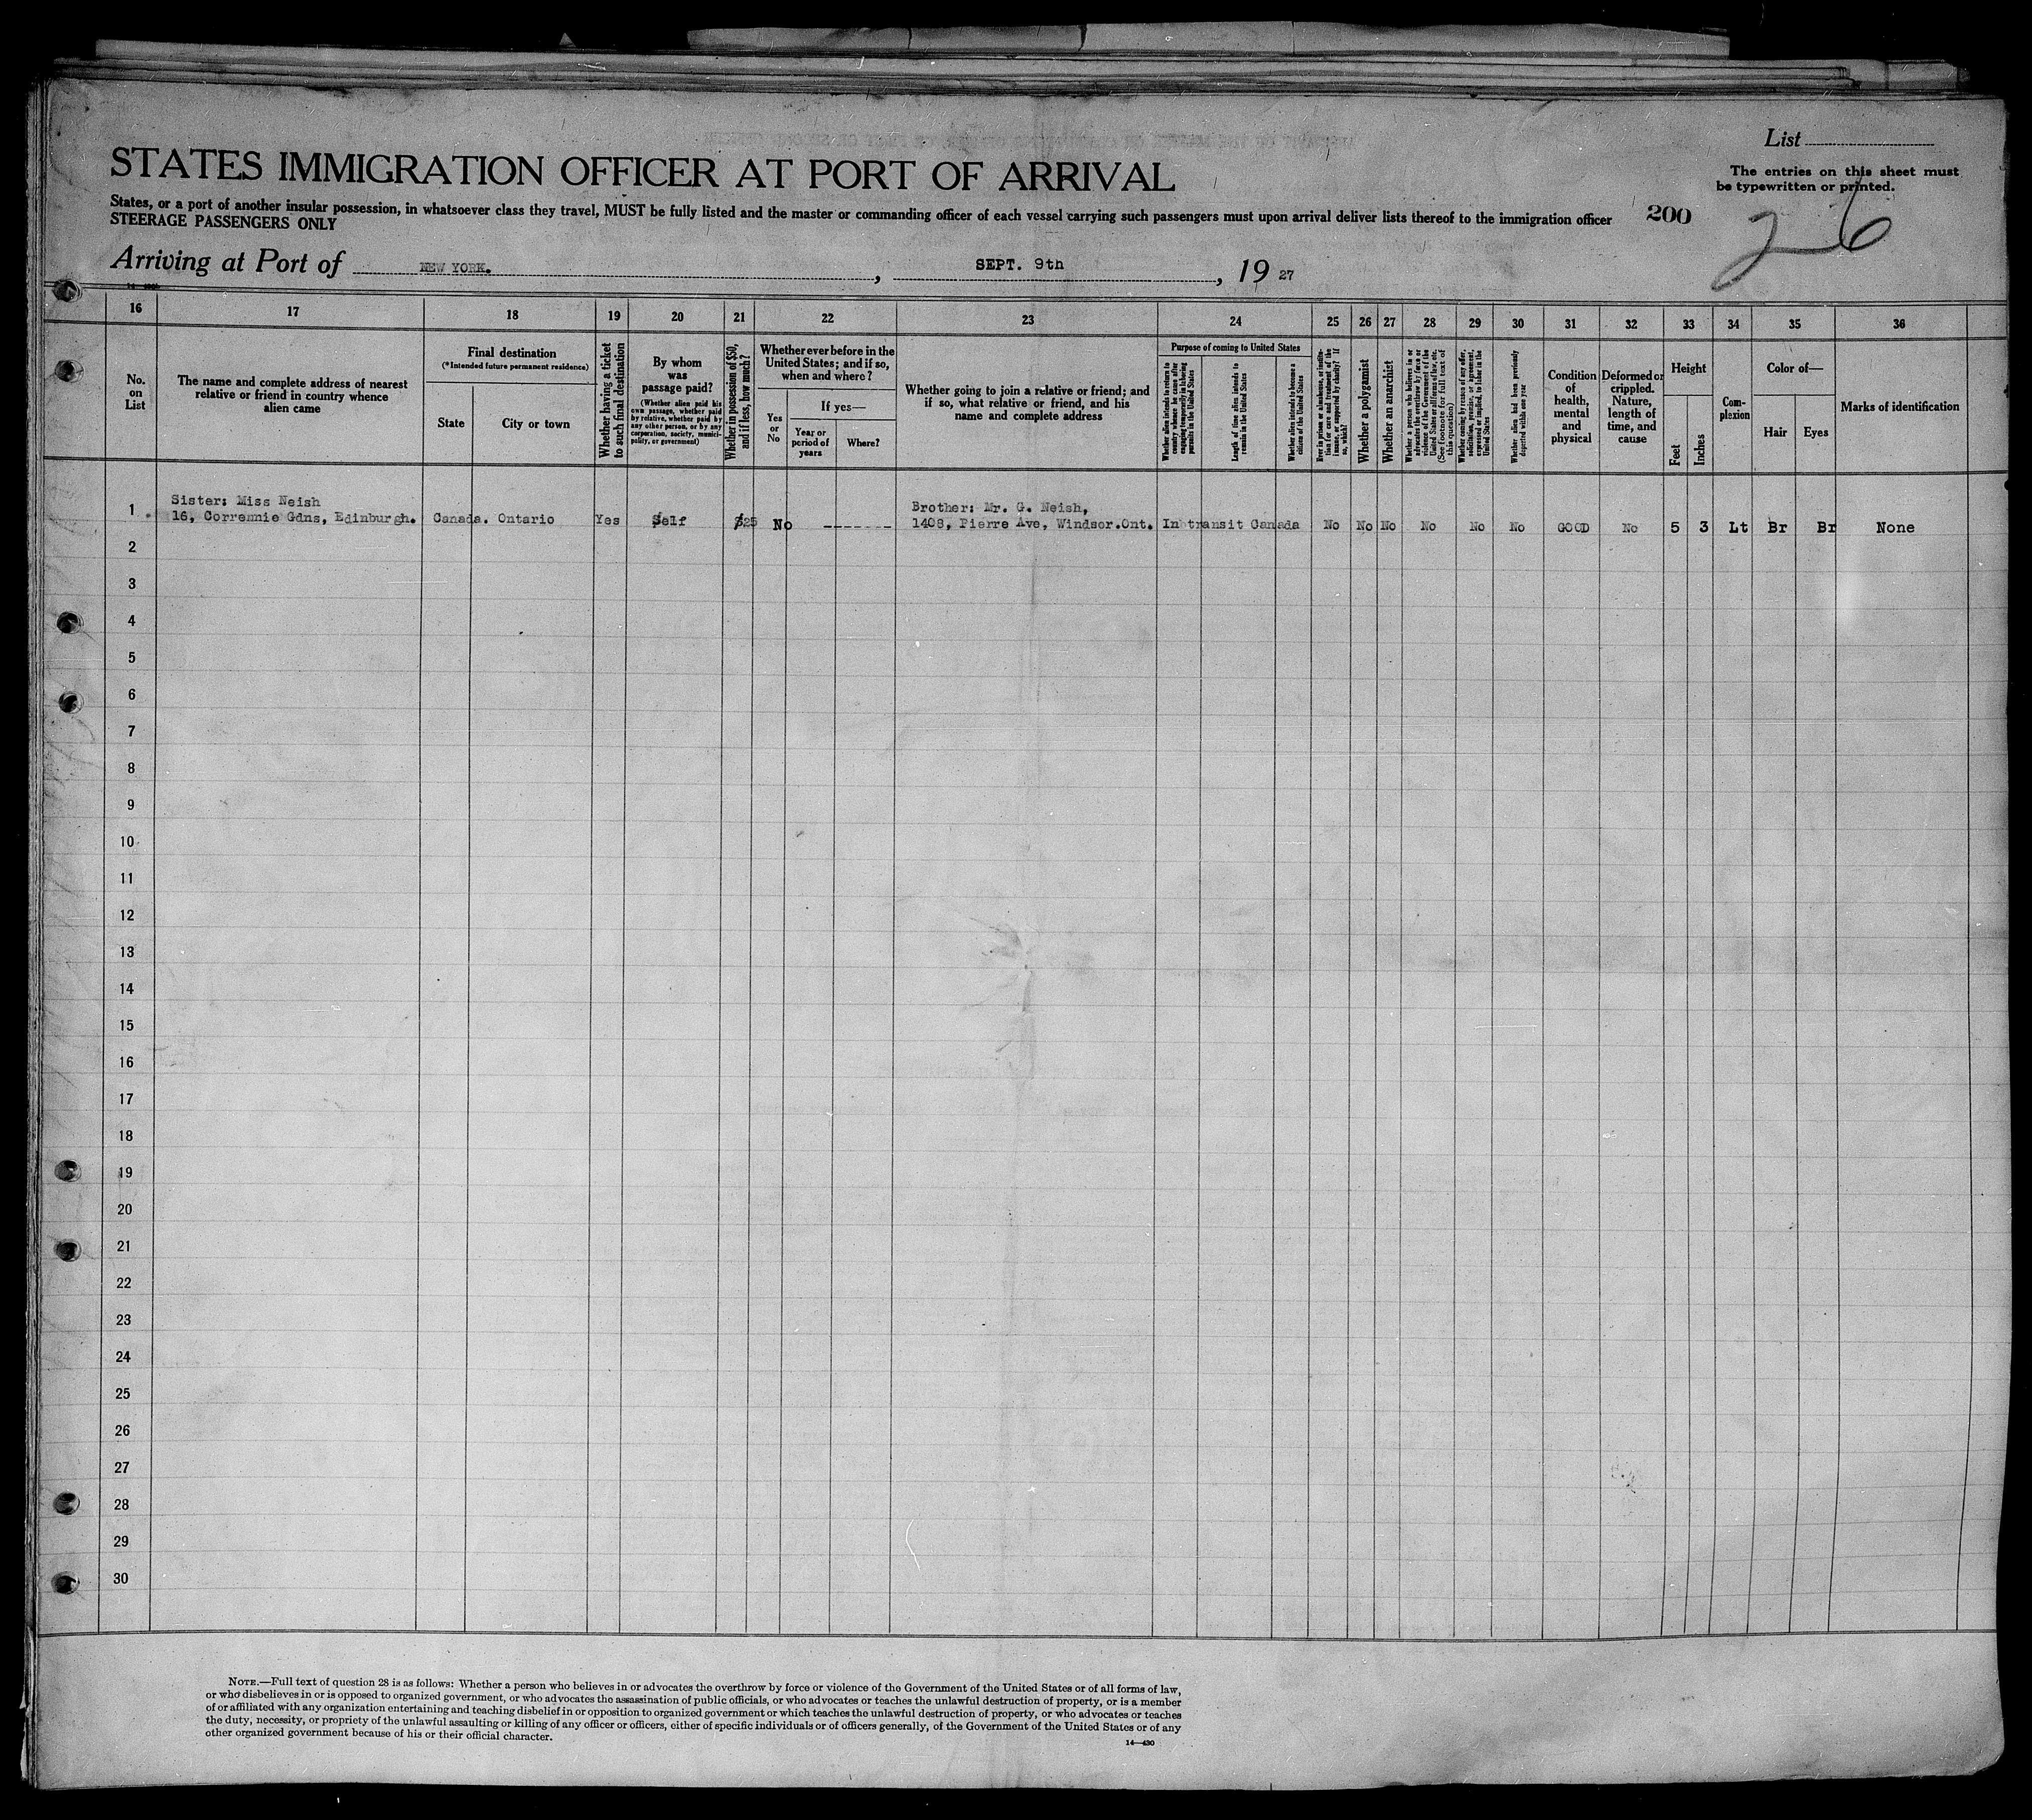 List
The entries on this sheet must
be typewritten or printed.
STATES IMMIGRATION OFFICER AT PORT OF ARRIVAL
States, or a port of another insular possession, in whatsoever class they travel, MUST be fully listed and the master or commanding officer of each vessel carrying such passengers must upon arrival deliver lists thereof to the immigration officer
STEERAGE PASSENGERS ONLY
200
26
Arriving at Port of NEW YORK. , SEPT. 9th , 19 27
16 17 18 19 20 21 22 23 24 25 26 27 28 29 30 31 32 33 34 35 36
No.
on
List
The name and complete address of nearest
relative or friend in country whence
alien came
Final destination
(*Intended future permanent residence)
State
City or town
Whether having a ticket
to such final destination
By whom
was
passage paid?
(Whether alien paid his
own passage, whether paid
by relative, whether paid by
any other person, or by any
corporation, society, munici-
pality, or government)
Whether in possession of $50,
and if less, how much?
Whether ever before in the
United States; and if so,
when and where?
Yes
or
No
If yes—
Year or
period of
years
Where?
Whether going to join a relative or friend; and
if so, what relative or friend, and his
name and complete address
Purpose of coming to United States
Whether alien intends to return to
country whence he came after
engaging temporarily in laboring
pursuits in the United States
Length of time alien intends to
remain in the United States
Whether alien intends to become a
citizen of the United States
Ever in prison or almshouse, or institu-
tion for care and treatment of the
insane, or supported by charity? If
so, which?
Whether a polygamist
Whether an anarchist
Whether a person who believes in or
advocates the overthrow by force or
violence of the Government of the
United States or all forms of law, etc.
(See footnote for full text of
this question)
Whether coming by reason of any offer,
solicitation, promise, or agreement,
expressed or implied, to labor in the
United States
Whether alien had been previously
deported within one year
Condition
of
health,
mental
and
physical
Deformed or
crippled.
Nature,
length of
time, and
cause
Height
Feet
Inches
Com-
plexion
Color of—
Hair
Eyes
Marks of identification
Sister: Miss Neish
Brother: Mr. G. Neish,
1 16, Corrennie Gdns, Edinburgh. Canada. Ontario Yes Self $25 No ------- 1408, Pierre Ave, Windsor.Ont. In transit Canada No No No No No No GOOD No 5 3 Lt Br Br None
2
3
4
5
6
7
8
9
10
11
12
13
14
15
16
17
18
19
20
21
22
23
24
25
26
27
28
29
30
NOTE.—Full text of question 28 is as follows: Whether a person who believes in or advocates the overthrow by force or violence of the Government of the United States or of all forms of law,
or who disbelieves in or is opposed to organized government, or who advocates the assassination of public officials, or who advocates or teaches the unlawful destruction of property, or is a member
of or affiliated with any organization entertaining and teaching disbelief in or opposition to organized government or which teaches the unlawful destruction of property, or who advocates or teaches
the duty, necessity, or propriety of the unlawful assaulting or killing of any officer or officers, either of specific individuals or of officers generally, of the Government of the United States or of any
other organized government because of his or their official character.
14—430